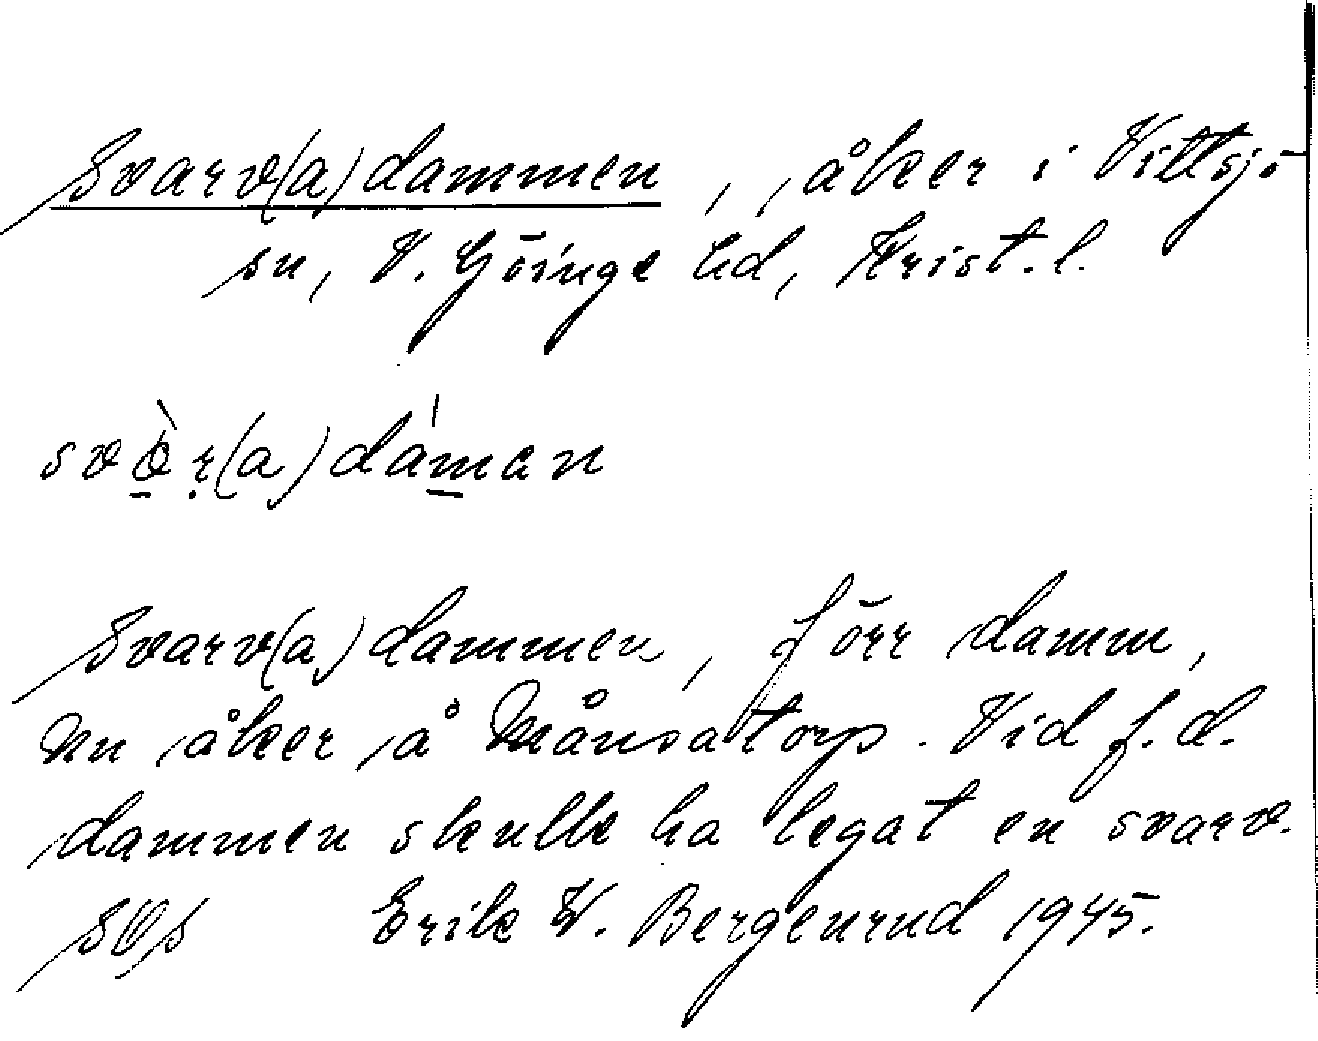 Svarv(a)dammen, åker i Vittsjö
sn, V. Göinge hd, Krist. l.
Svarv(a)dammen, förr damm,
nu åker å Månsatorp. Vid f.d.
dammen skulle ha legat en svarv.
SOS Erik W. Bergenrud 1945.